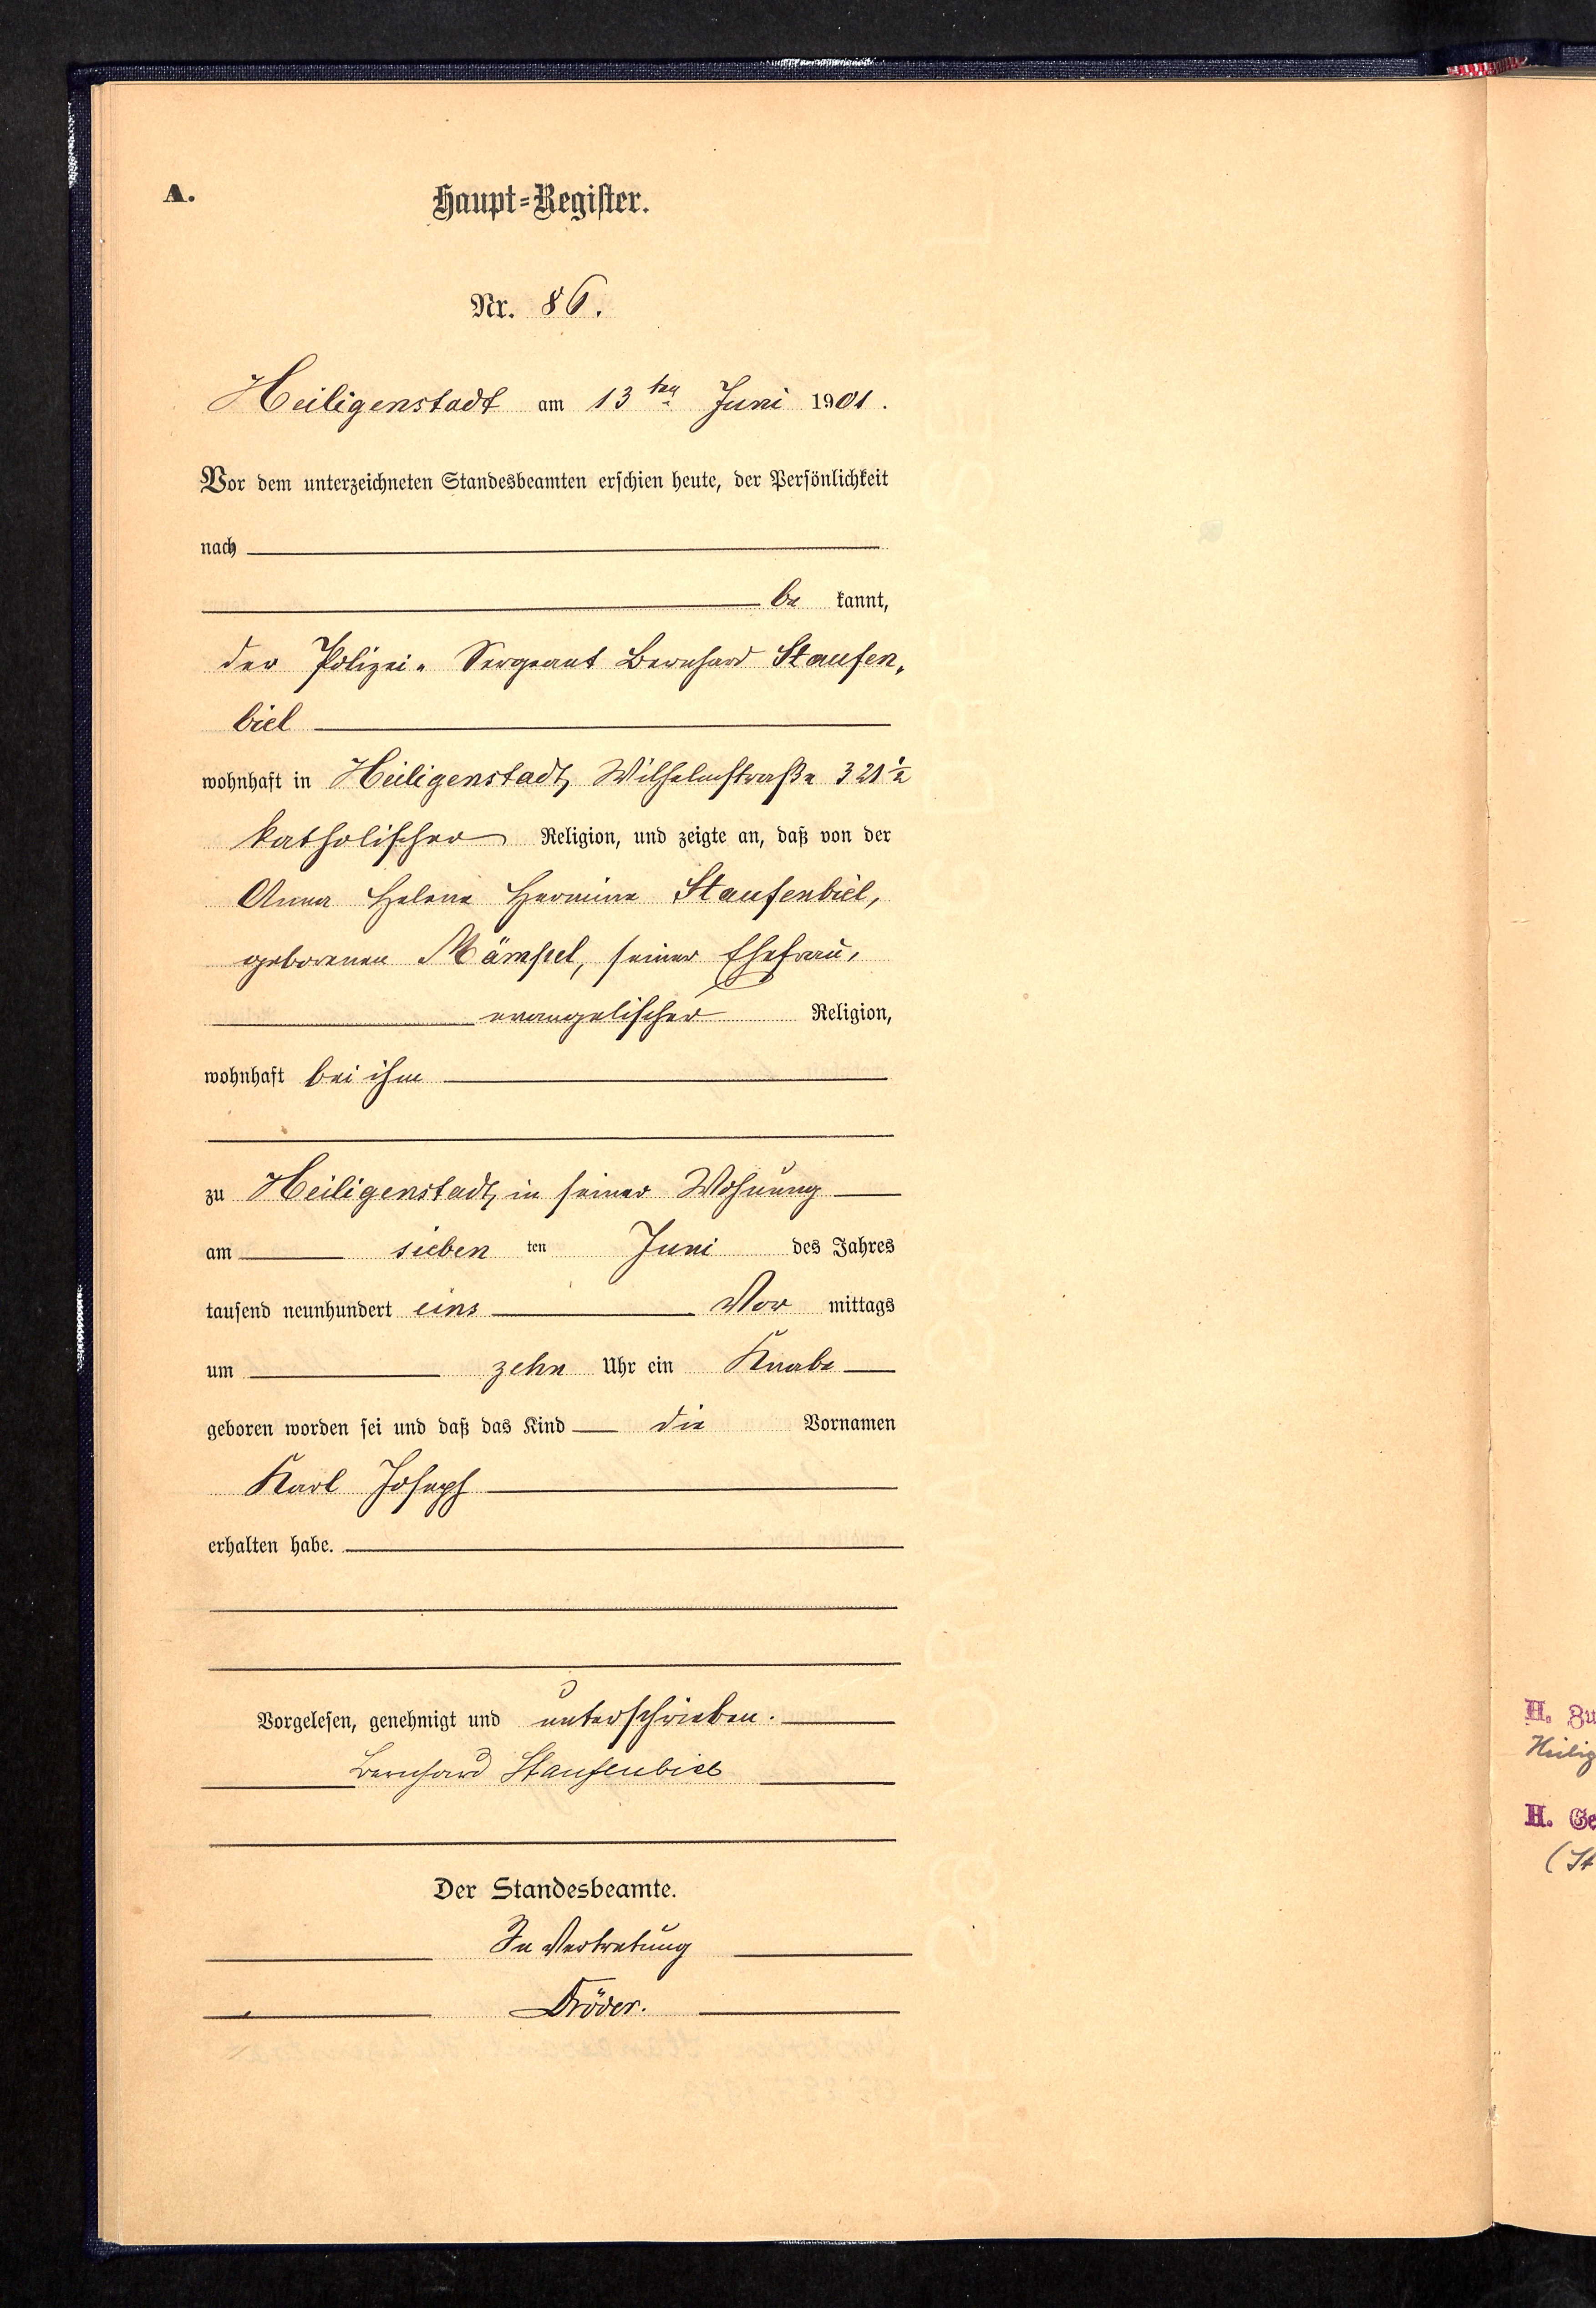 A.
Haupt-Register.
Nr. 86.
Heiligenstadt am 13ten Juni 1901.
Vor dem unterzeichneten Standesbeamten erschien heute, der Persönlichkeit
nach
be kannt,
der Polizei-Sergeant Bernhard Staufen-
biel
wohnhaft in Heiligenstadt, Wilhelmstraße 321½
katholischer Religion, und zeigte an, daß von der
Anna Helene Hermine Staufenbiel,
geborenen Mämpel, seiner Ehefrau,
evangelischer Religion,
wohnhaft bei ihm
zu Heiligenstadt, in seiner Wohnung
am sieben ten Juni des Jahres
tausend neunhundert eins Vor mittags
um zehn Uhr ein Knabe
geboren worden sei und daß das Kind die Vornamen
Karl Joseph
erhalten habe.
Vorgelesen, genehmigt und unterschrieben.
Bernhard Staufenbiel
Der Standesbeamte.
In Vertretung
H. Zu
Heilig
H. Ge
(St